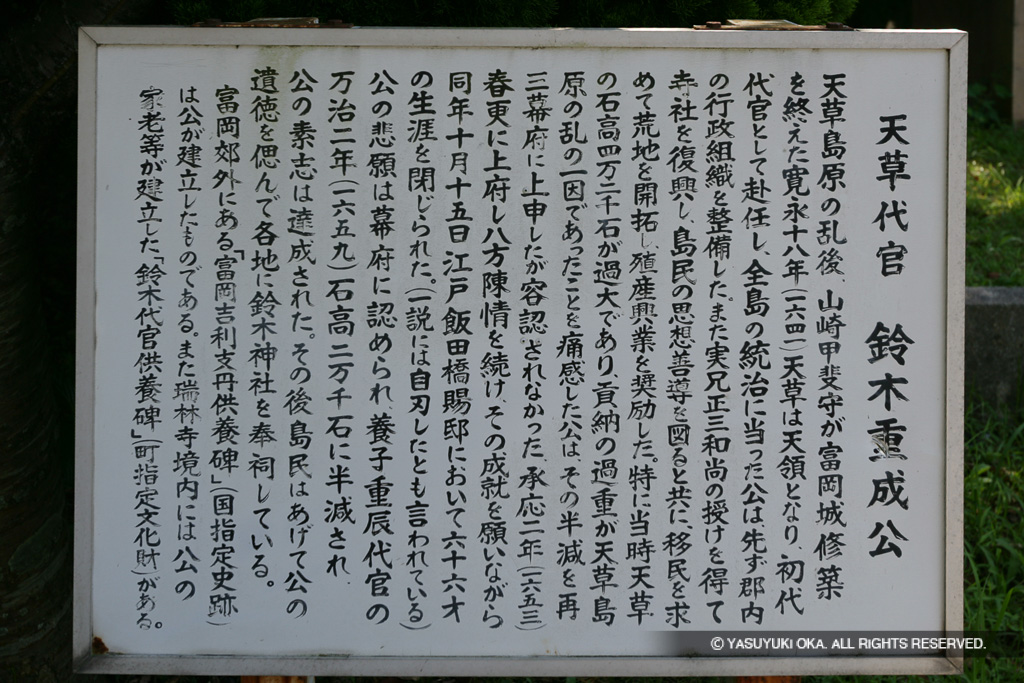 天草代官　鈴木重成公
天草島原の乱後、山崎甲斐守が富岡城修築
を終えた寛永十八年(一六四一)天草は天領となり、初代
代官として赴任し、全島の統治に当った公は、先ず郡内
の行政組織を整備した。また実兄正三和尚の授けを得て
寺社を復興し、島民の思想善導を図ると共に、移民を求
めて荒地を開拓し、殖産興業を奨励した。特に当時天草
の石高四万二千石が過大であり、貢納の過重が天草島
原の乱の一因であったことを痛感した公は、その半減を再
三幕府に上申したが容認されなかった。承応二年(一六五三)
春更に上府し八方陳情を続け、その成就を願いながら
同年十月十五日江戸飯田橋賜邸において六十六才
の生涯を閉じられた。(一説には自刃したとも言われている)
公の悲願は幕府に認められ、養子重辰代官の
万治二年(一六五九)石高二万千石に半減され、
公の素志は達成された。その後島民はあげて公の
遺徳を偲んで各地に鈴木神社を奉祠している。
富岡郊外にある「富岡吉利支丹供養碑」(国指定史跡)
は公が建立したものである。また瑞林寺境内には公の
家老等が建立した「鈴木代官供養碑」(町指定文化財)がある。
© YASUYUKI OKA. ALL RIGHTS RESERVED.